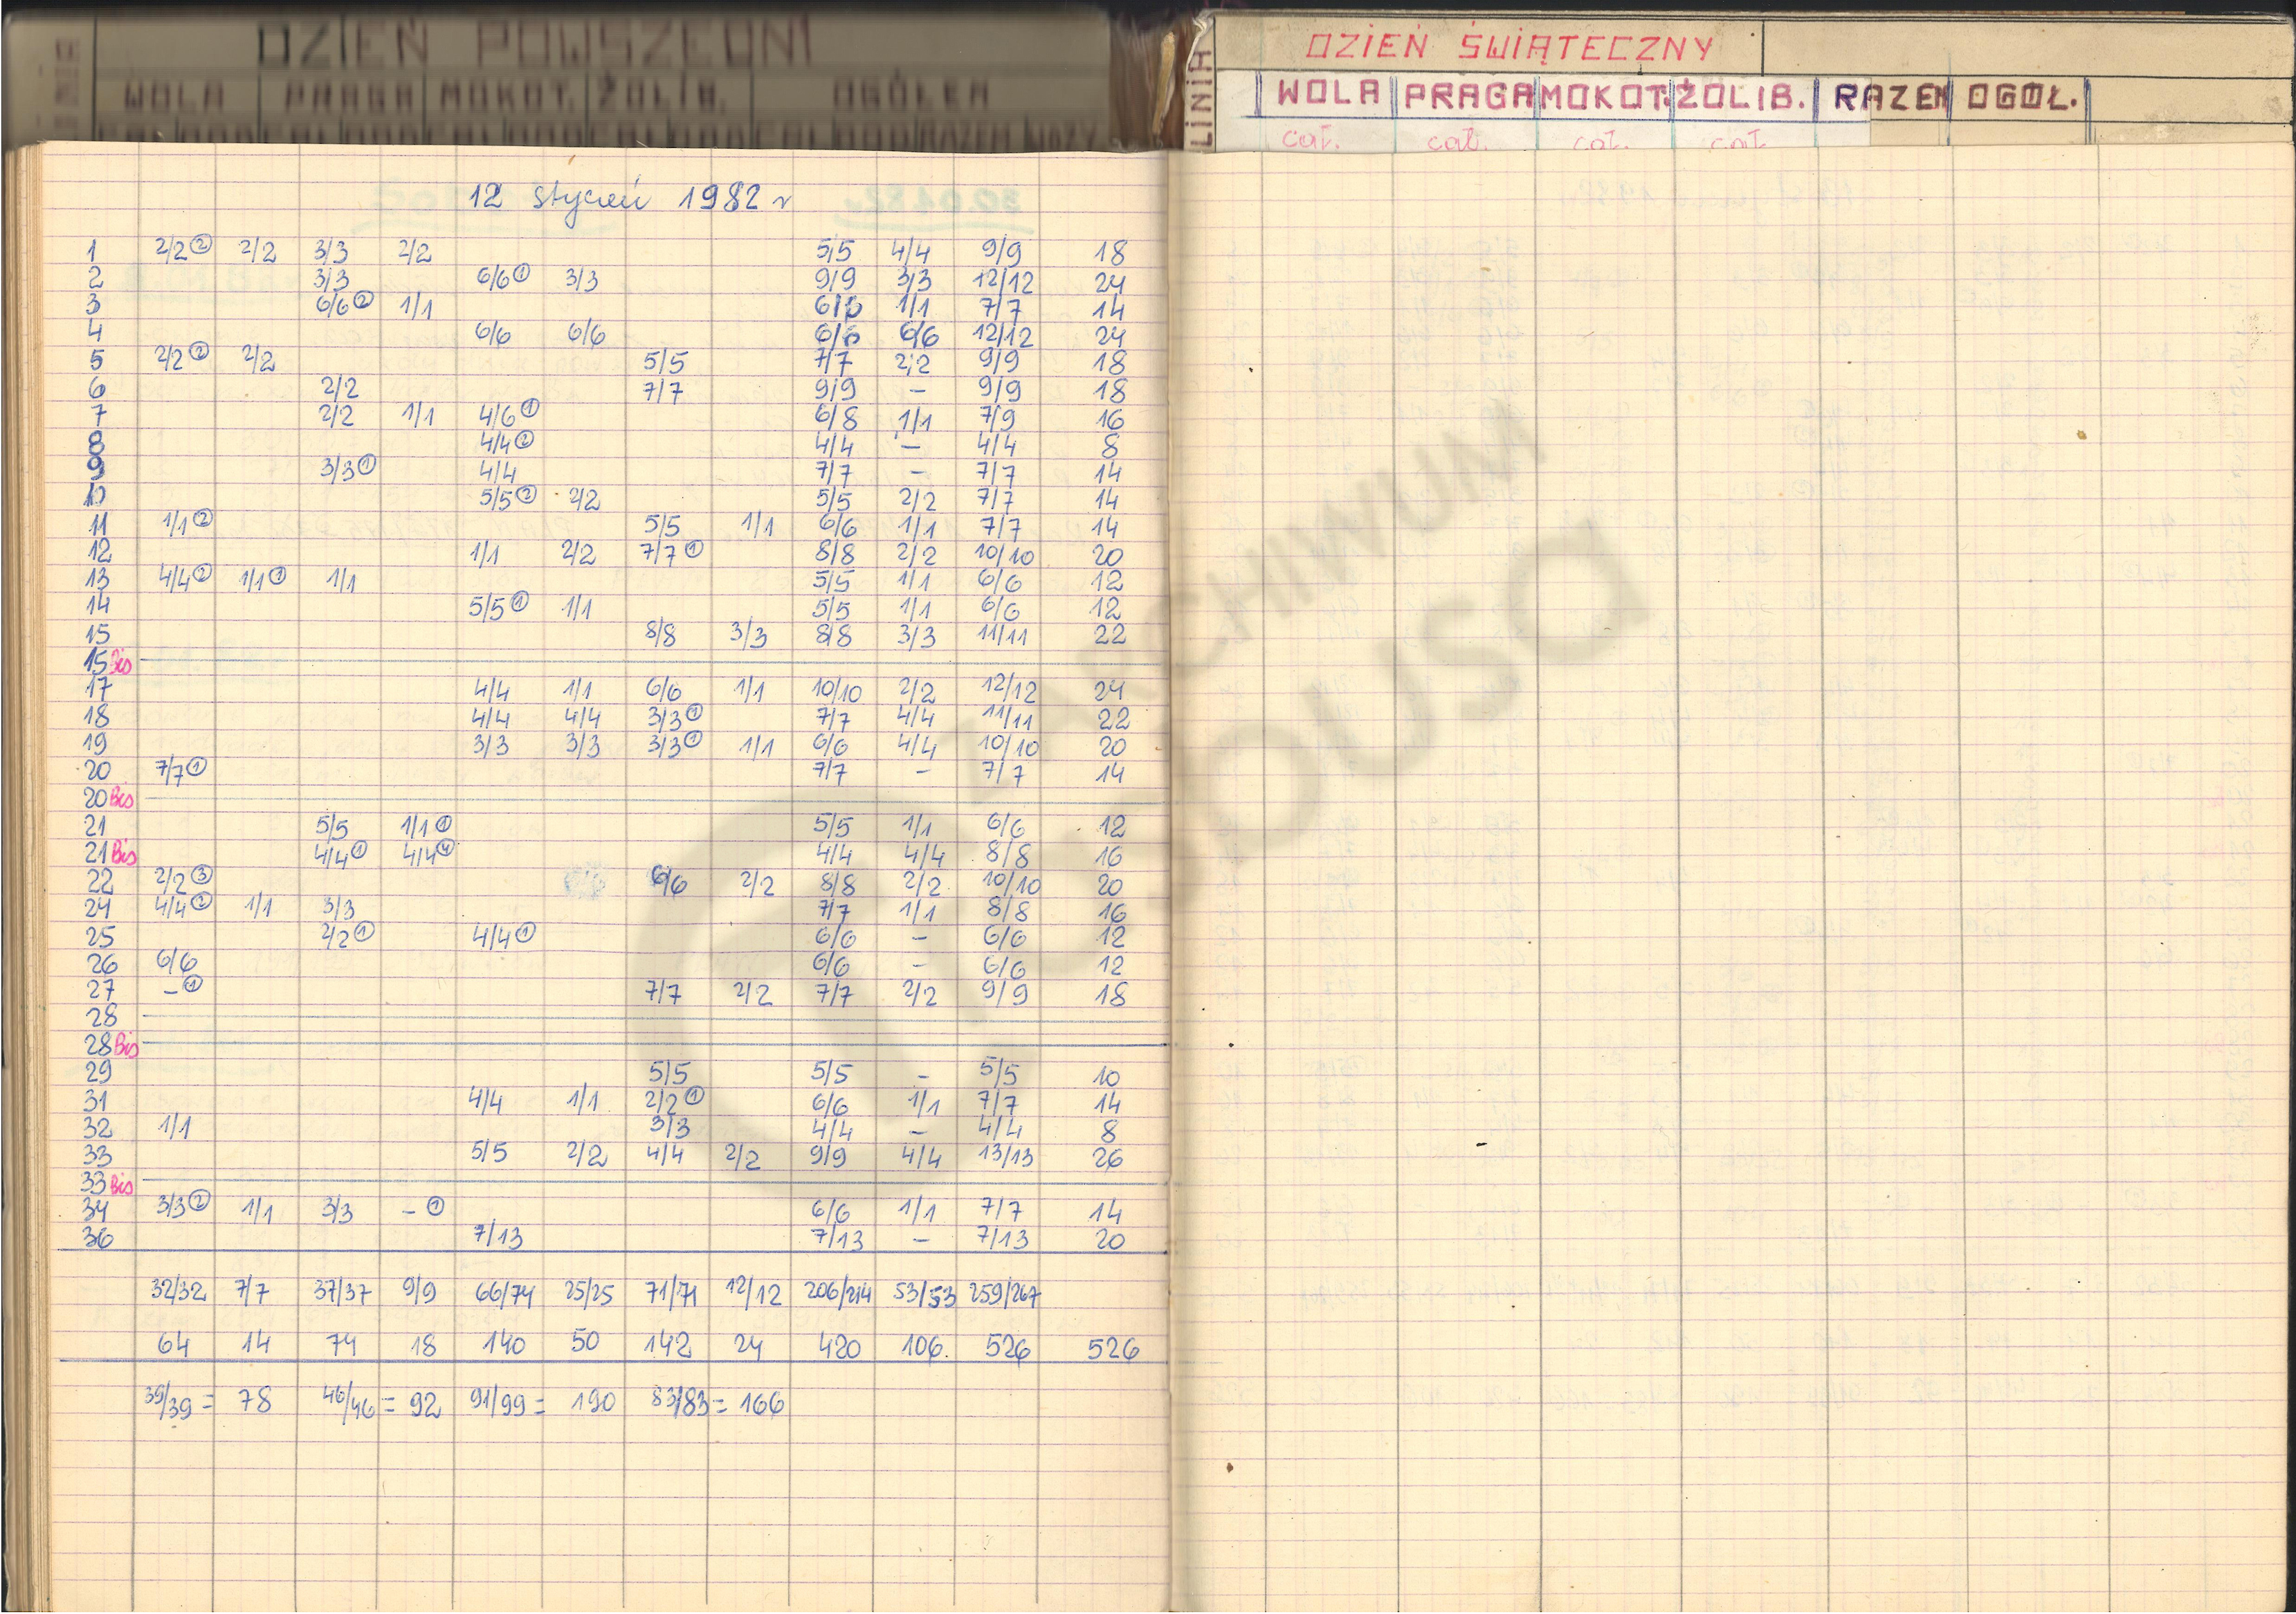 DZIEŃ POWSZEDNI
WOLA PRAGA MOKOT. ŻOLIB. OGÓŁEM
LINIA DZIEŃ ŚWIĄTECZNY
WOLA PRAGA MOKOT. ŻOLIB. RAZEM OGÓŁ.
cał. cał. cał. cał.
12 styczeń 1982 r
1 2/2 ② 2/2 3/3 2/2 5/5 4/4 9/9 18
2 3/3 6/6 ① 3/3 9/9 3/3 12/12 24
3 6/6 ② 1/1 6/6 1/1 7/7 14
4 6/6 6/6 6/6 6/6 12/12 24
5 2/2 ② 2/2 5/5 7/7 2/2 9/9 18
6 2/2 7/7 9/9 – 9/9 18
7 2/2 1/1 4/6 ① 6/8 1/1 7/9 16
8 4/4 ② 4/4 – 4/4 8
9 3/3 ① 4/4 7/7 – 7/7 14
10 5/5 ② 2/2 5/5 2/2 7/7 14
11 1/1 ② 5/5 1/1 6/6 1/1 7/7 14
12 1/1 2/2 7/7 ① 8/8 2/2 10/10 20
13 4/4 ② 1/1 ① 1/1 5/5 1/1 6/6 12
14 5/5 ① 1/1 5/5 1/1 6/6 12
15 8/8 3/3 8/8 3/3 11/11 22
15 Bis
17 4/4 1/1 6/6 1/1 10/10 2/2 12/12 24
18 4/4 4/4 3/3 ① 7/7 4/4 11/11 22
19 3/3 3/3 3/3 ① 1/1 6/6 4/4 10/10 20
20 7/7 ① 7/7 – 7/7 14
20 Bis
21 5/5 1/1 ① 5/5 1/1 6/6 12
21 Bis 4/4 ① 4/4 ④ 4/4 4/4 8/8 16
22 2/2 ③ 6/6 2/2 8/8 2/2 10/10 20
24 4/4 ② 1/1 3/3 7/7 1/1 8/8 16
25 2/2 ① 4/4 ① 6/6 – 6/6 12
26 6/6 6/6 – 6/6 12
27 – ① 7/7 2/2 7/7 2/2 9/9 18
28
28 Bis
29 5/5 5/5 – 5/5 10
31 4/4 1/1 2/2 ① 6/6 1/1 7/7 14
32 1/1 3/3 4/4 – 4/4 8
33 5/5 2/2 4/4 2/2 9/9 4/4 13/13 26
33 Bis
34 3/3 ② 1/1 3/3 – ① 6/6 1/1 7/7 14
36 7/13 7/13 – 7/13 20
32/32 7/7 37/37 9/9 66/74 25/25 71/71 12/12 206/214 53/53 259/267
64 14 74 18 140 50 142 24 420 106. 526 526
39/39 = 78 46/46 = 92 91/99 = 190 83/83 = 166